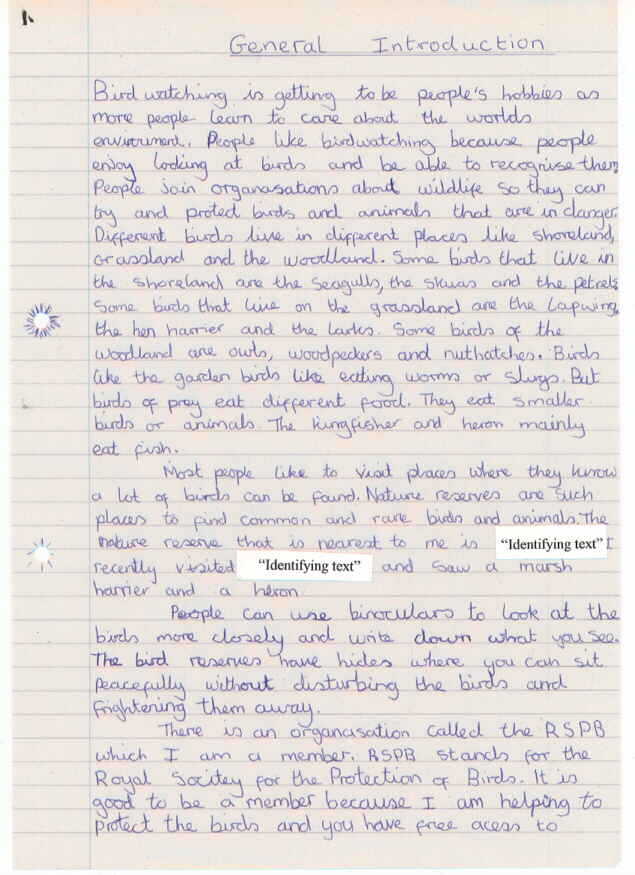 General Introduction
Bird watching is getting to be people's hobbies as
more people learn to care about the worlds
enviroument. People like birdwatching because people
enjoy looking at birds and be able to recognise them
People join organasations about wildlife so they can
try and protect birds and animals that are in danger.
Different birds live in different places like shoreland,
Grassland and the woodland. Some birds that live in
the shoreland are the seagulls, the skuas and the petrels
Some birds that live on the grassland are the lapwing,
the hen harrier and the larks. Some birds of the
woodland are owls, woodpeckers and nuthatches. Birds
like the garden birds like eating worms or slugs. But
birds of prey eat different food. They eat smaller
birds or animals. The kingfisher and heron mainly
eat fish.
Most people like to visit places where they know
a lot of birds can be found. Nature reserves are such
places to find common and rare birds and animals. The
nature reserve that is nearest to me is "Identifying text" I
recently visited "Identifying text" and saw a marsh
harrier and a heron
People can use binoculars to look at the
birds more closely and write down what you see.
The bird reserves have hides where you can sit
peacefully without disturbing the birds and
frightening them away.
There is an organasation called the RSPB
which I am a member. RSPB stands for the
Royal Socitey for the Protection of Birds. It is
good to be a member because I am helping to
protect the birds and you have free acess to